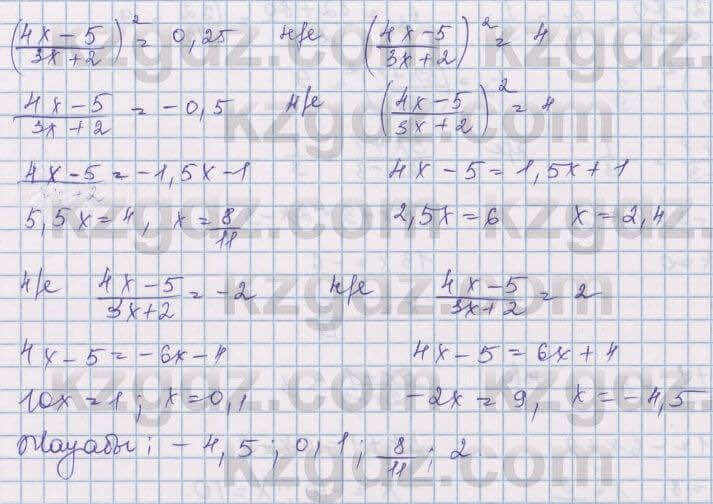 ((4x-5)/(3x+2))² = 0,25 н/е ((4x-5)/(3x+2))² = 4
(4x-5)/(3x+2) = -0,5 н/е ((4x-5)/(3x+2))² = 4
4x-5 = -1,5x-1 4x-5 = 1,5x+1
5,5x=4, x=8/11 2,5x=6 x=2,4
н/е (4x-5)/(3x+2) = -2 н/е (4x-5)/(3x+2) = 2
4x-5 = -6x-4 4x-5 = 6x+4
10x=1; x=0,1 -2x=9, x=-4,5
Жауабы: -4,5; 0,1; 8/11; 2
kzgdz.com